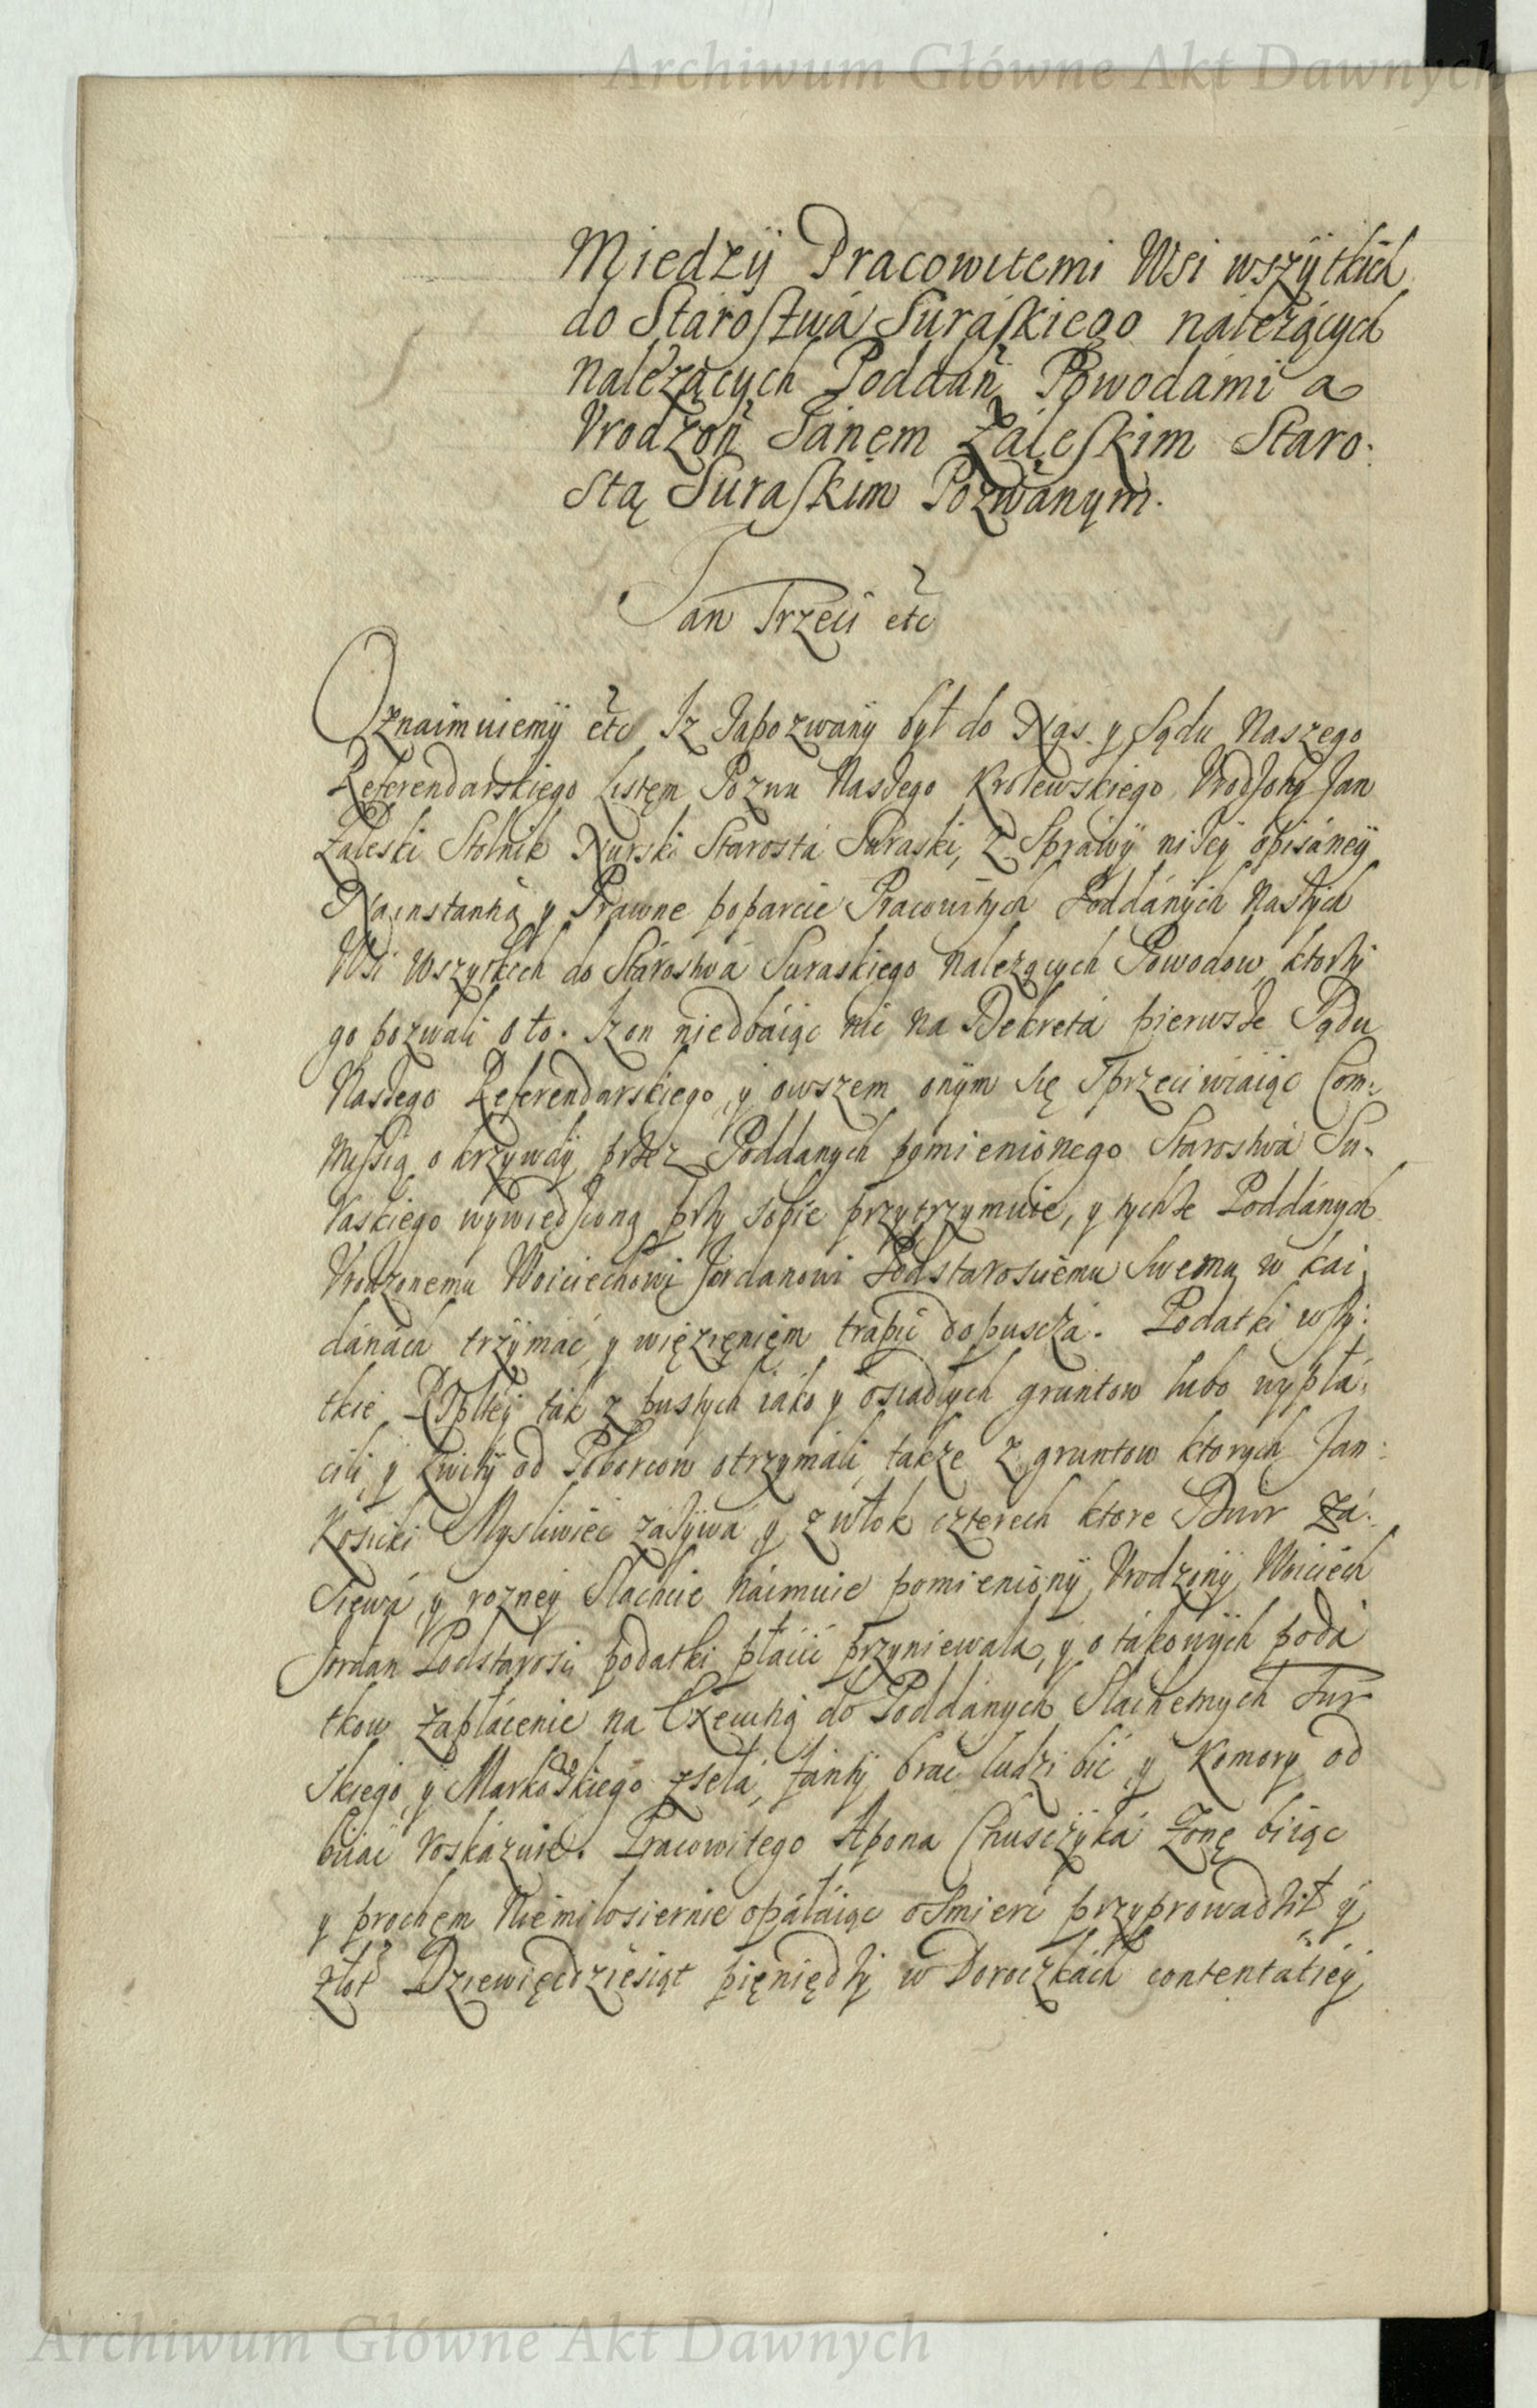 Archiwum Główne Akt Dawnych
Miedzÿ Pracowitemi Wsi wszÿtkich
do Starostwá Suráskiego náležących
náležących Poddań Powodámi a
Vrodzoñ Janem Záleskim Staro:
stą Suraskim Pozwánym.
Jan Trzeci etc
Oznaimuiemÿ etc Iz Zapozwánÿ był do Nas y Sądu Naszego
Referendarskiego Listem Pozwu Naszego Krolewskiego Vrodzony Jan
Zaleski Stolnik Nurski Starostá Suraski, z Spráwÿ niżey opisáneÿ
Na instantią y Prawne poparcie Pracowitych Poddánych Naszych
Wsi Wszytkich do Stárostwá Suraskiego należących Powodow, ktorzy
go pozwali o to. Iz on niedbáiąc nic na Dekretá pierwsze Sądu
Naszego Referendarskiego, y owszem onÿm się sprzeciwiáiąc Com:
missią o krzywdÿ przez Poddanych pomienionego Starostwá Su-
raskiego wywiedzioną przy sobie przytrzymuie, y tychże Poddánych
Vrodzonemu Woiciechowi Jordanowi Podstarosciemu swemu w kai
dánách trzÿmáć y więzięniem trapić dopuscza. Podatki wszy:
tkie Rzpltey ták z pustych iáko y osiadłych gruntow lubo wypłá:
cili, y kwity od Poborcow otrzymáli, także z gruntow ktorych Jan
Kosicki Mysliwiec záżywa, y z włok czterech ktore Dwor Zá:
siewá, y rozneÿ Slachcie náimuie pomienionÿ Vrodzonÿ Woiciech
Jordan Podstarosci podatki płácić przyniewala, y o tákowÿch podá
tkow zapłácenie na Exeucią do Poddánych Slachetnych Tur
skiego, y Markowskiego zseła, fanty brac ludzi bić y Komory od
biiać roskázuie. Pracowitego Apona Chusczyká Żonę biiąc
y prochem niemiłosiernie opáláiąc o smierć przyprowadził ÿ
złot Dziewięcdziesiąt pięniędzy w Doroczkách contentátiey
Archiwum Główne Akt Dawnych